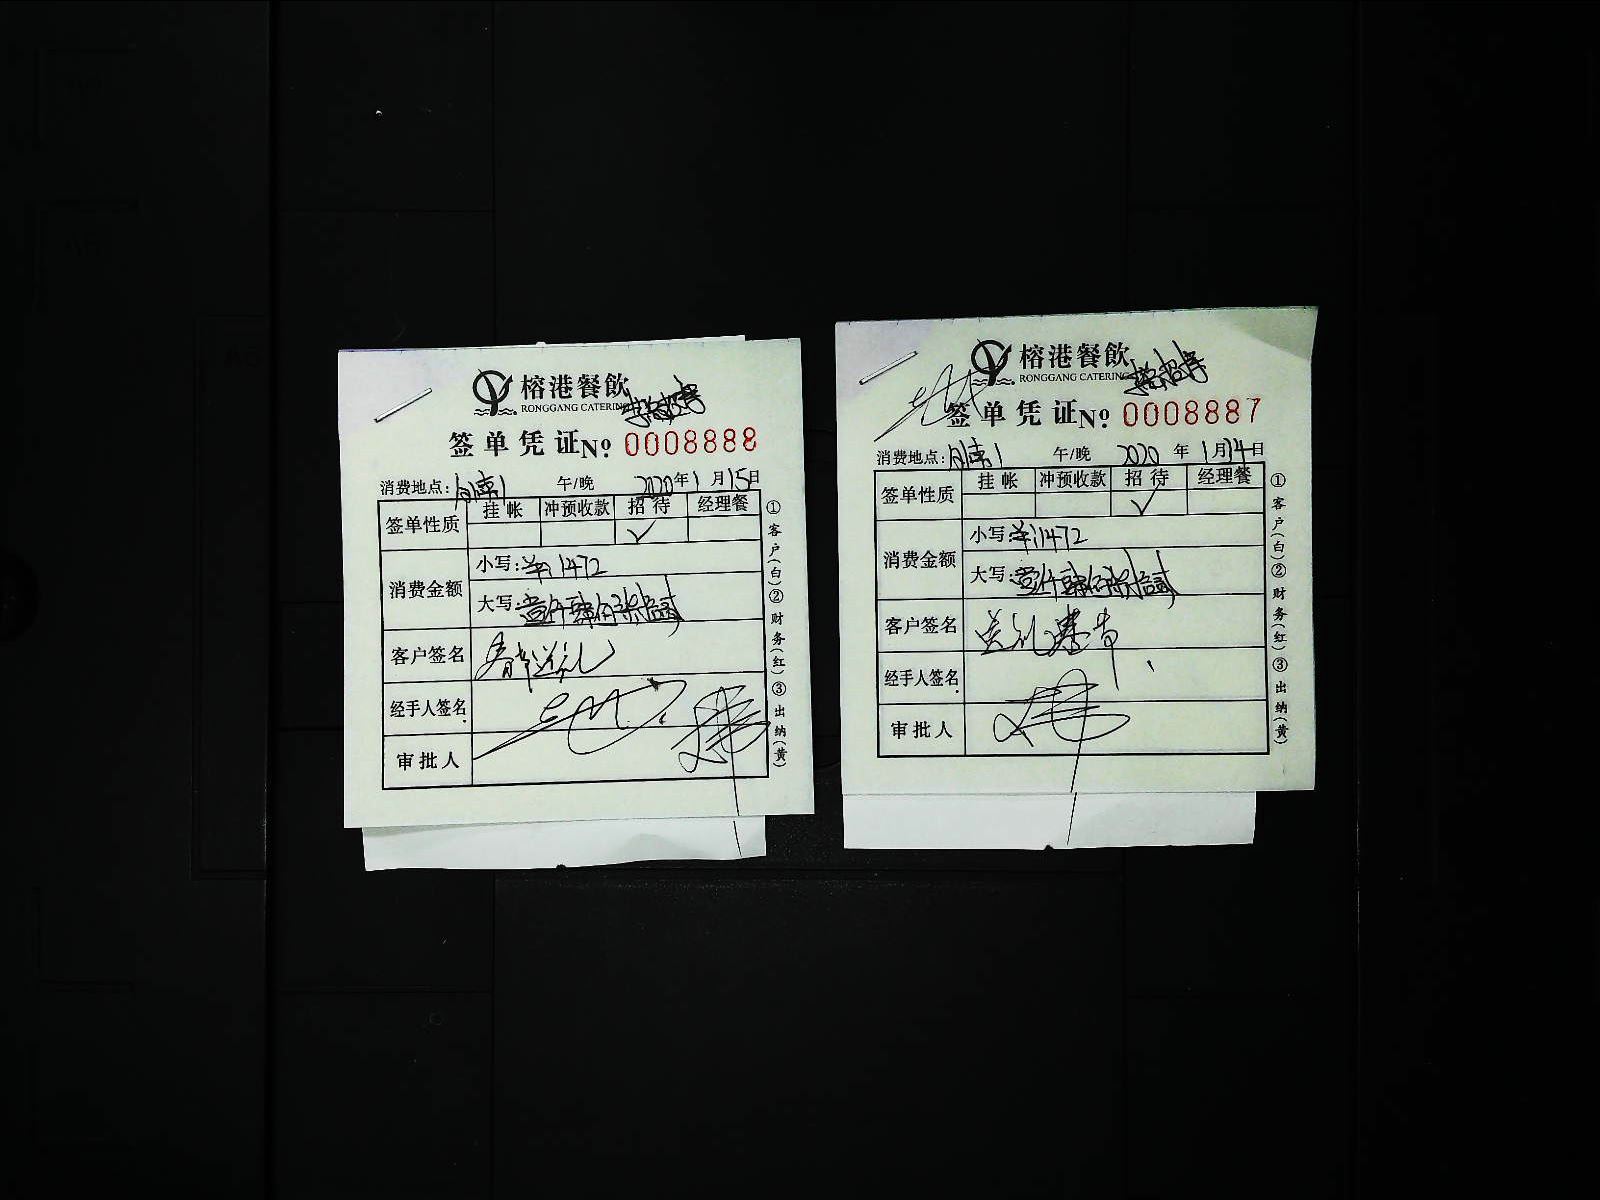 榕港餐飲
RONGGANG CATERING
签单凭证№ 0008888
消费地点: 午/晚 2020年1月15日
签单性质 挂帐 冲预收款 招待 经理餐
✓
消费金额 小写:1472
大写:壹仟肆佰柒拾贰
客户签名 春节送礼
经手人签名
审批人
①客户(白)②财务(红)③出纳(黄)
榕港餐飲
RONGGANG CATERING
签单凭证№ 0008887
消费地点: 午/晚 2020年1月14日
签单性质 挂帐 冲预收款 招待 经理餐
✓
消费金额 小写:1472
大写:壹仟肆佰柒拾贰
客户签名 送礼
经手人签名
审批人
①客户(白)②财务(红)③出纳(黄)